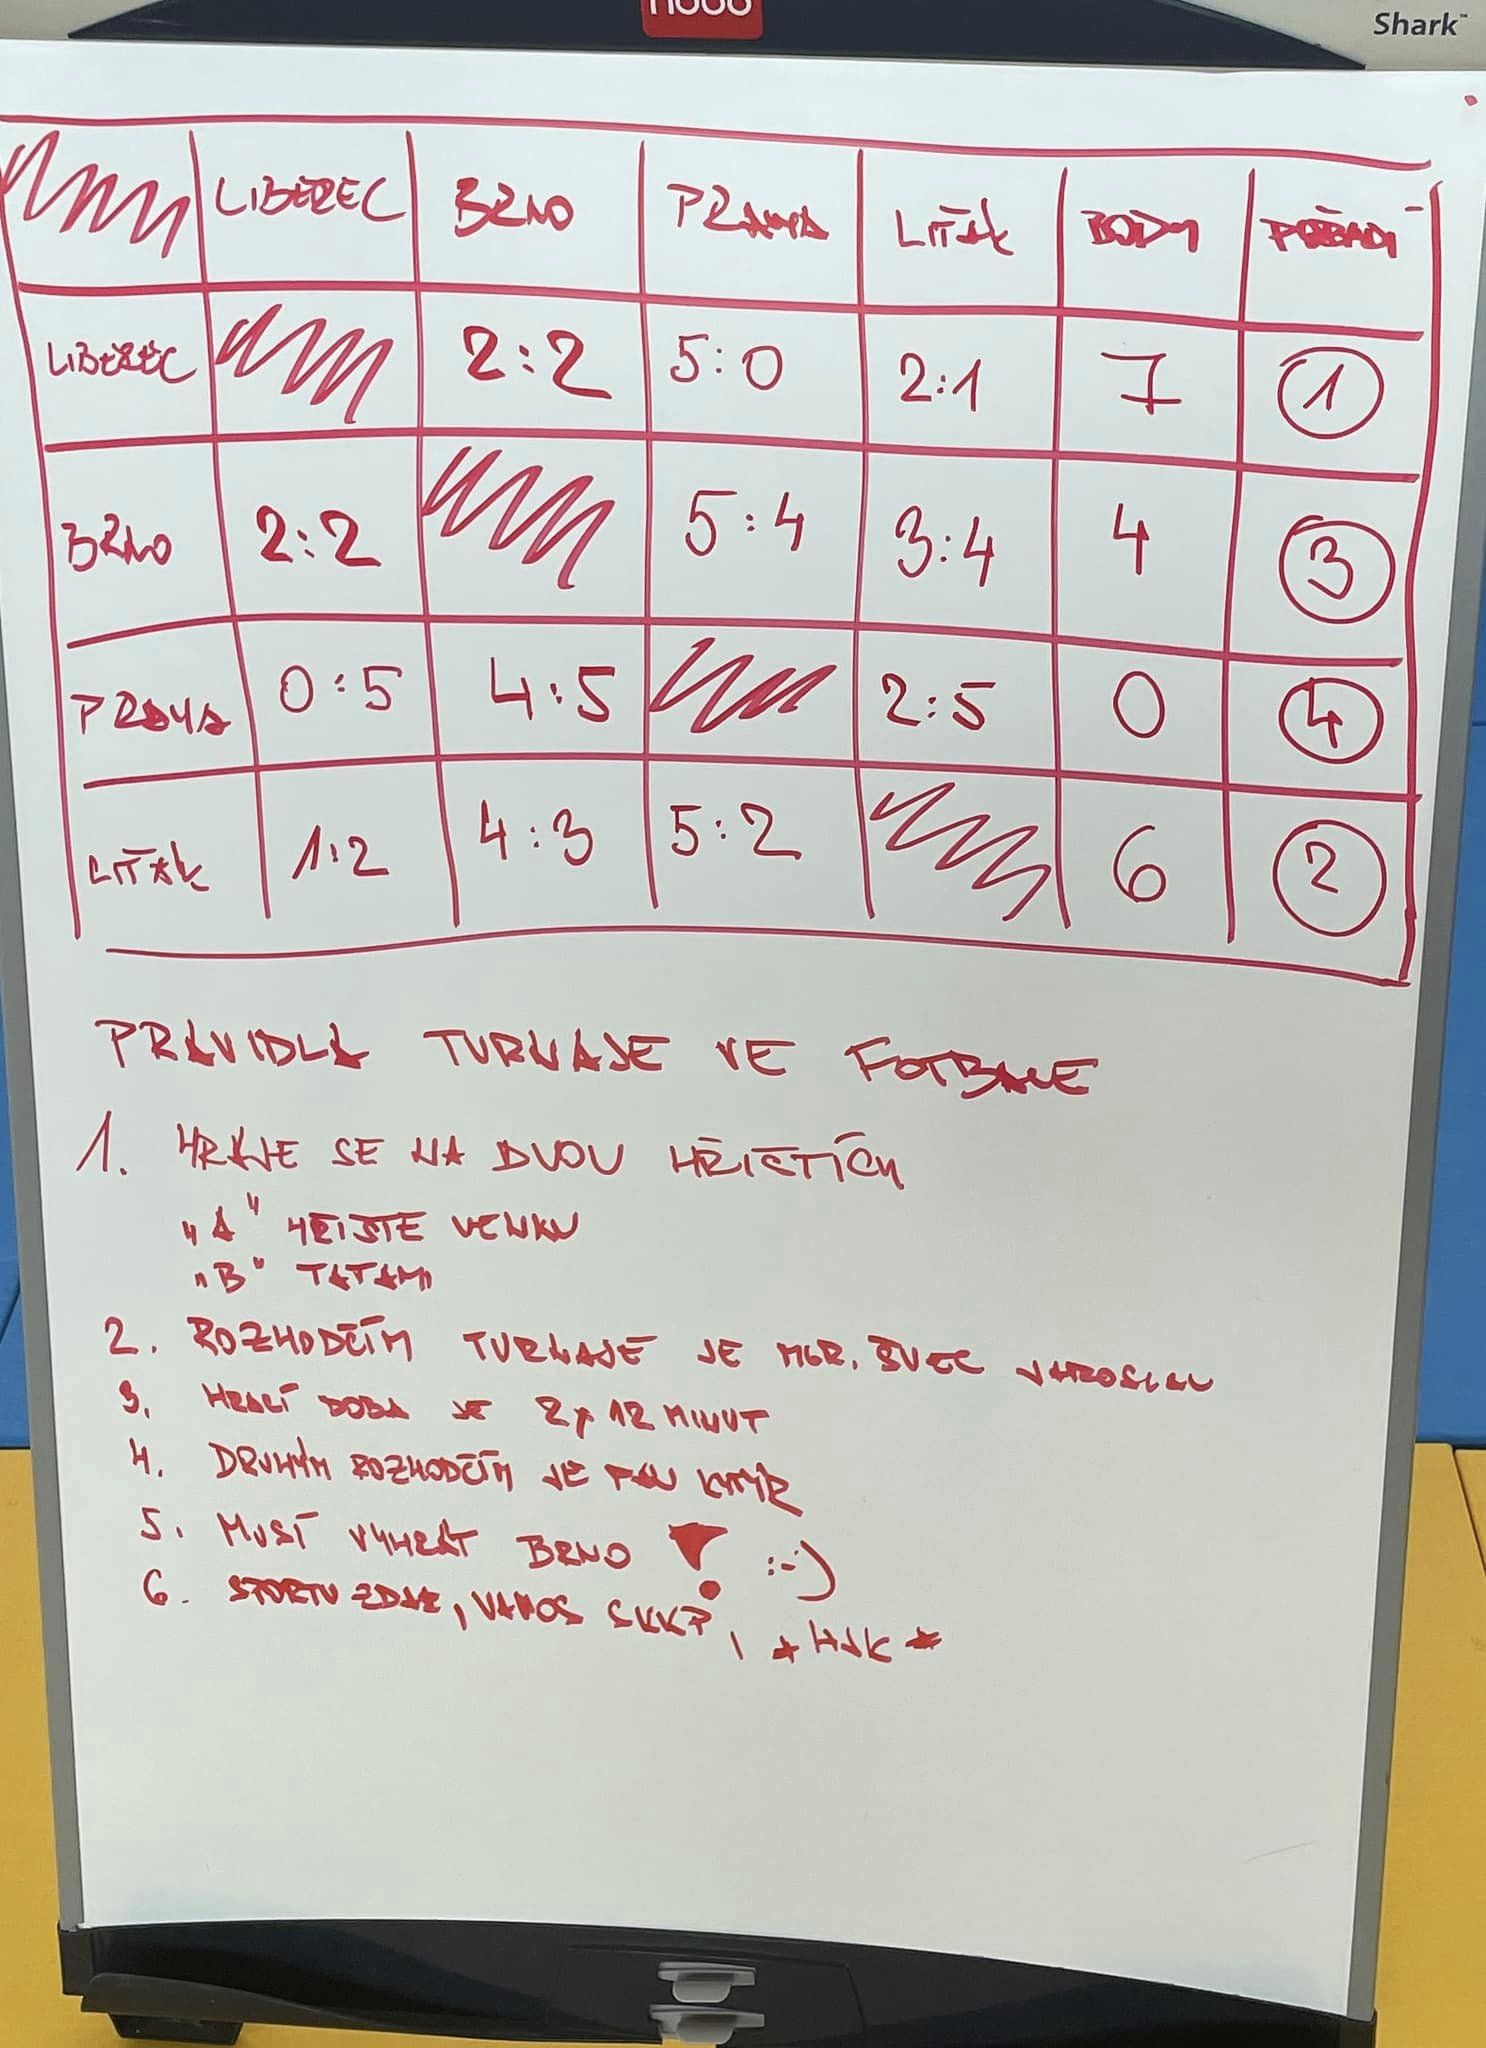 nobo
Shark™
LIBEREC BRNO PRAHA LITÁK BODY POŘADÍ
LIBEREC 2:2 5:0 2:1 7 1
BRNO 2:2 5:4 3:4 4 3
PRAHA 0:5 4:5 2:5 0 4
LITÁK 1:2 4:3 5:2 6 2
PRAVIDLA TURNAJE VE FOTBALE
1. HRAJE SE NA DVOU HŘIŠTÍCH
"A" HŘIŠTĚ VENKU
"B" TATAMI
2. ROZHODČÍM TURNAJE JE MGR. ŠVEC JAROSLAV
3. HRACÍ DOBA JE 2x12 MINUT
4. DRUHÝM ROZHODČÍM JE PAN
5. MUSÍ VYHRÁT BRNO ! :-)
6. SPORTU ZDAR, VAMOS SKKP, * HJK *